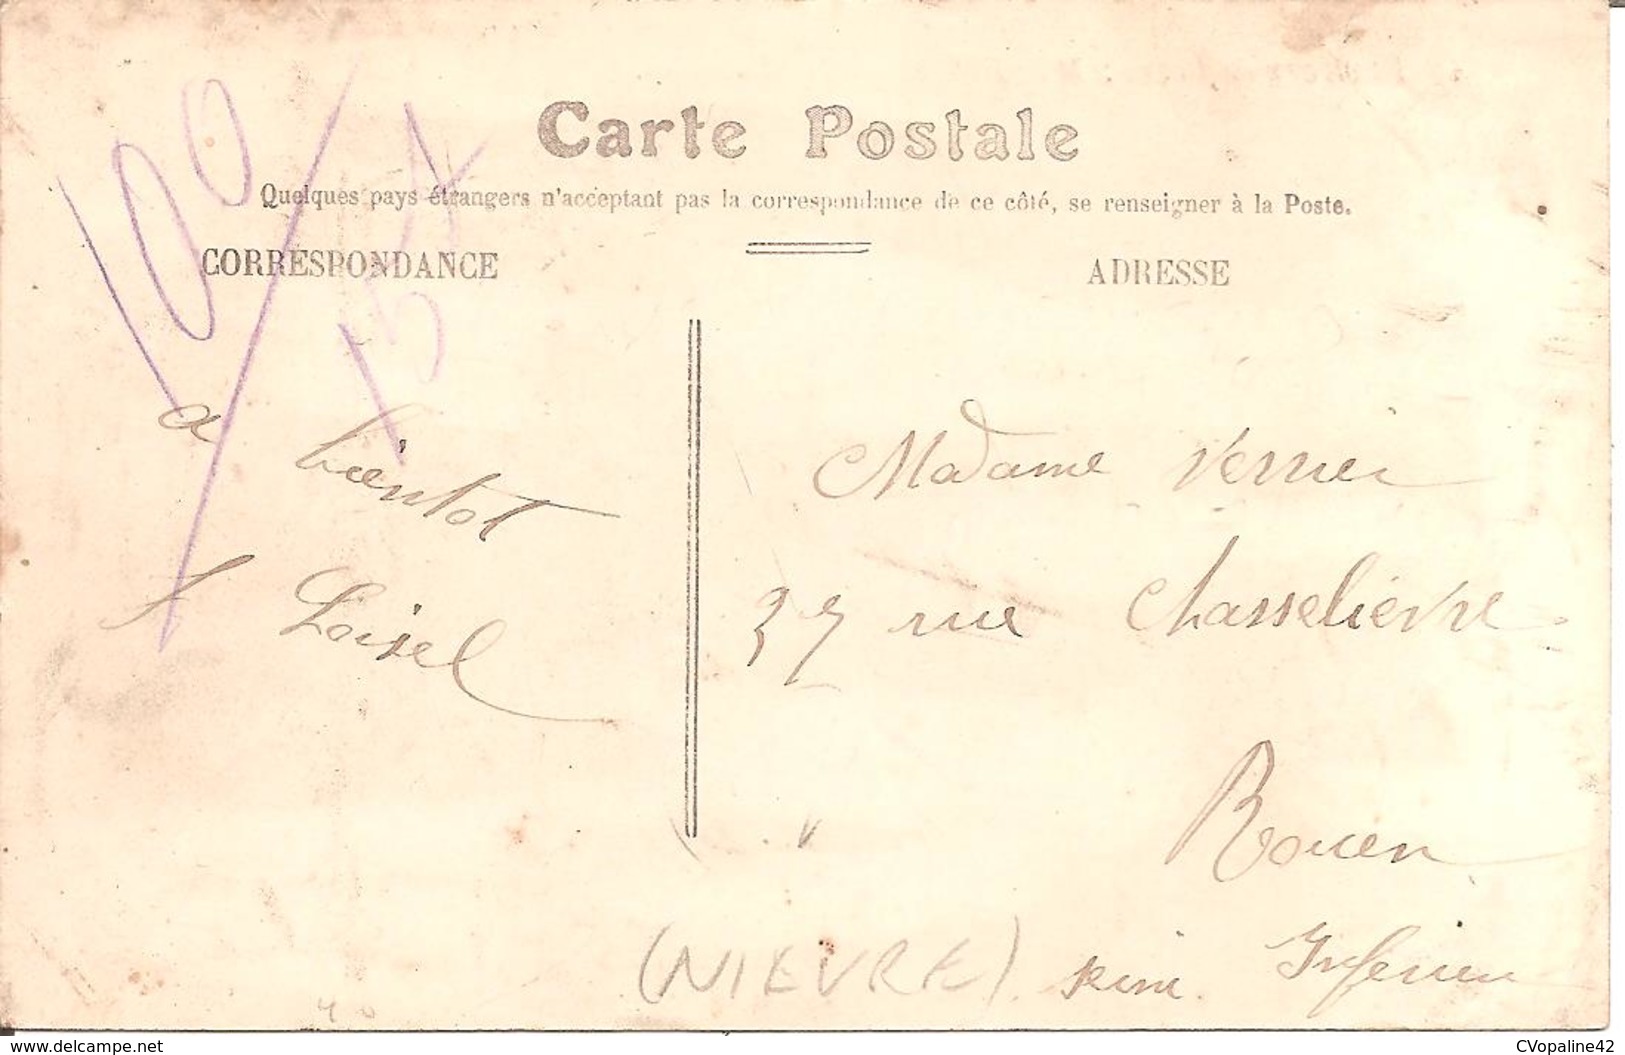 Carte Postale
Quelques pays étrangers n'acceptant pas la correspondance de ce côté, se renseigner à la Poste.
CORRESPONDANCE
ADRESSE
100
a bientot
Loisel
Madame Verrier
37 rue Chasselievre
Rouen
Seine Inferieu
(NIEVRE)
www.delcampe.net
CVopaline42